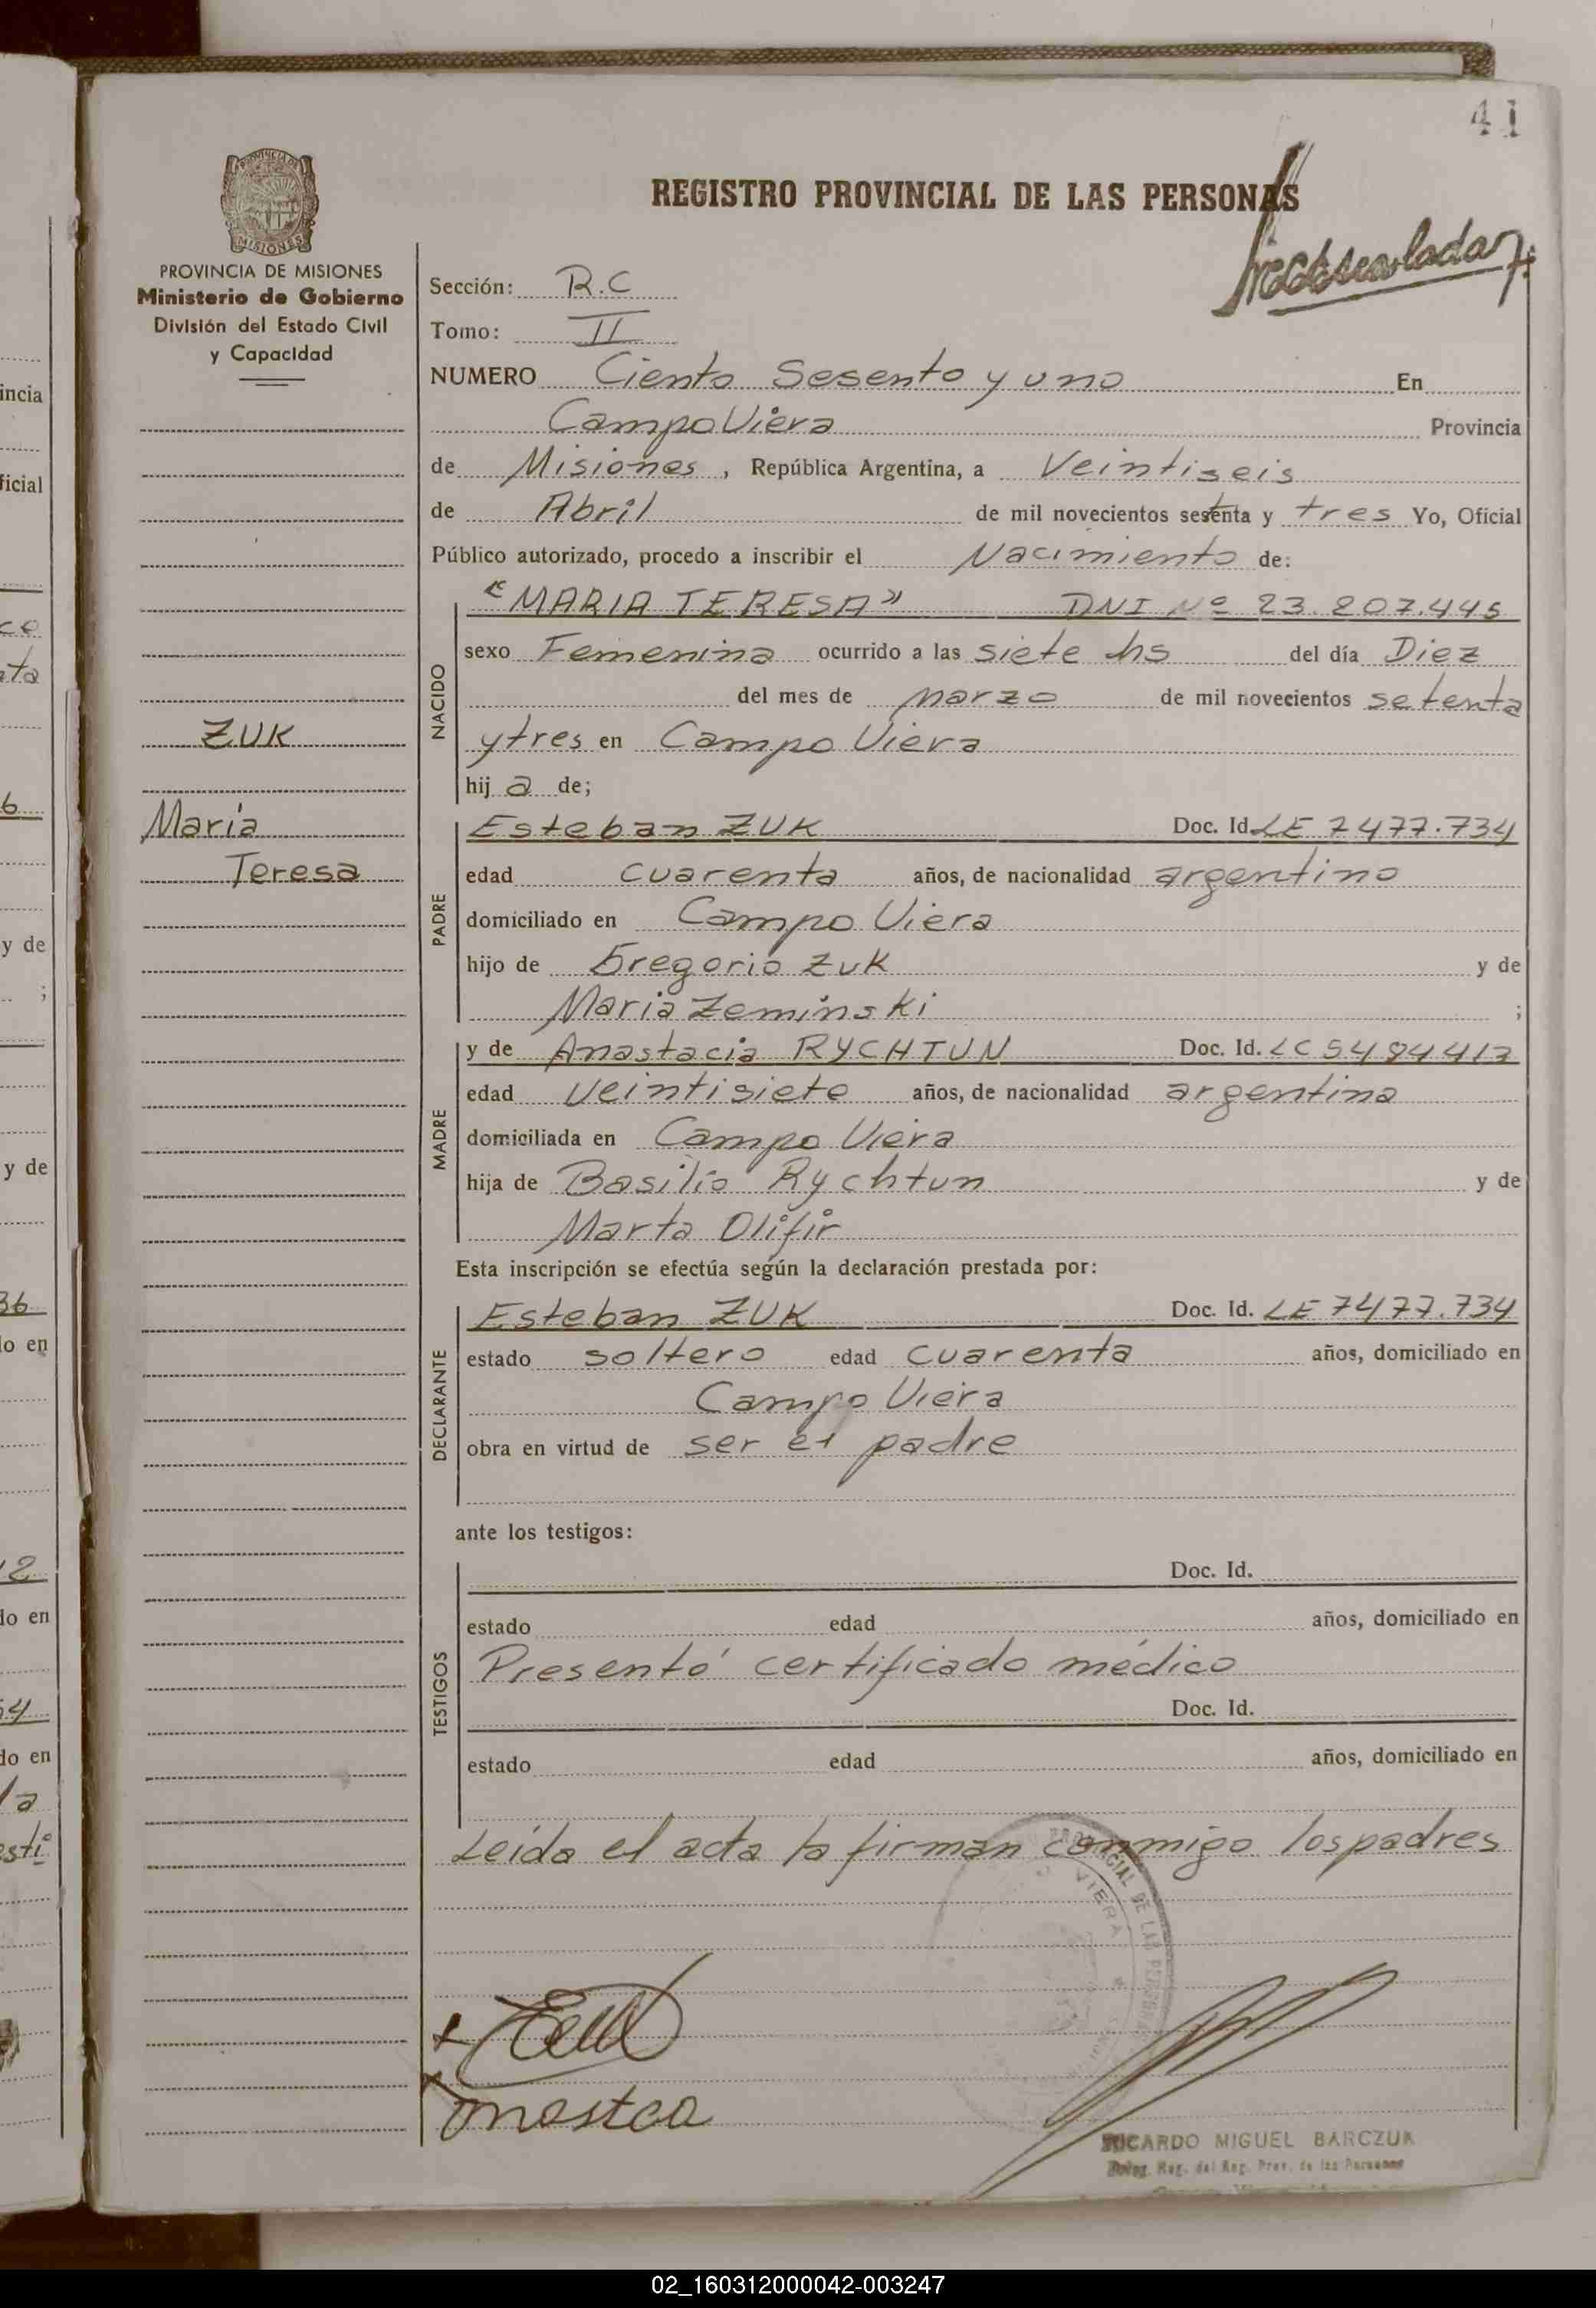 41
REGISTRO PROVINCIAL DE LAS PERSONAS
PROVINCIA DE MISIONES
MISIONES
PROVINCIA DE MISIONES
Ministerio de Gobierno
División del Estado Civil
y Capacidad
ZUK
María
Teresa
Sección: R.C
Tomo: II
NUMERO Ciento Sesento y uno En
Campo Viera Provincia
de Misiones, República Argentina, a Veintiseis
de Abril de mil novecientos setenta y tres Yo, Oficial
Público autorizado, procedo a inscribir el Nacimiento de:
NACIDO
"MARIA TERESA" DNI Nº 23.207.445
sexo Femenina ocurrido a las siete hs del día Diez
del mes de marzo de mil novecientos setenta
y tres en Campo Viera
hij a de;
PADRE
Esteban ZUK Doc. Id. LE 7477.734
edad cuarenta años, de nacionalidad argentino
domiciliado en Campo Viera
hijo de Gregorio Zuk y de
Maria Zeminski ;
MADRE
y de Anastacia RYCHTUN Doc. Id. LC
edad Veintisiete años, de nacionalidad argentina
domiciliada en Campo Viera
hija de Basilio Rychtun y de
Marta Olifir
Esta inscripción se efectúa según la declaración prestada por:
DECLARANTE
Esteban ZUK Doc. Id. LE 7477.734
estado soltero edad cuarenta años, domiciliado en
Campo Viera
obra en virtud de ser el padre
ante los testigos:
TESTIGOS
Doc. Id.
estado edad años, domiciliado en
Presentó certificado médico
Doc. Id.
estado edad años, domiciliado en
Leída el acta la firman conmigo los padres
RICARDO MIGUEL BARCZUK
Deleg. Reg. del Reg. Prov. de las Personas
02_160312000042-003247